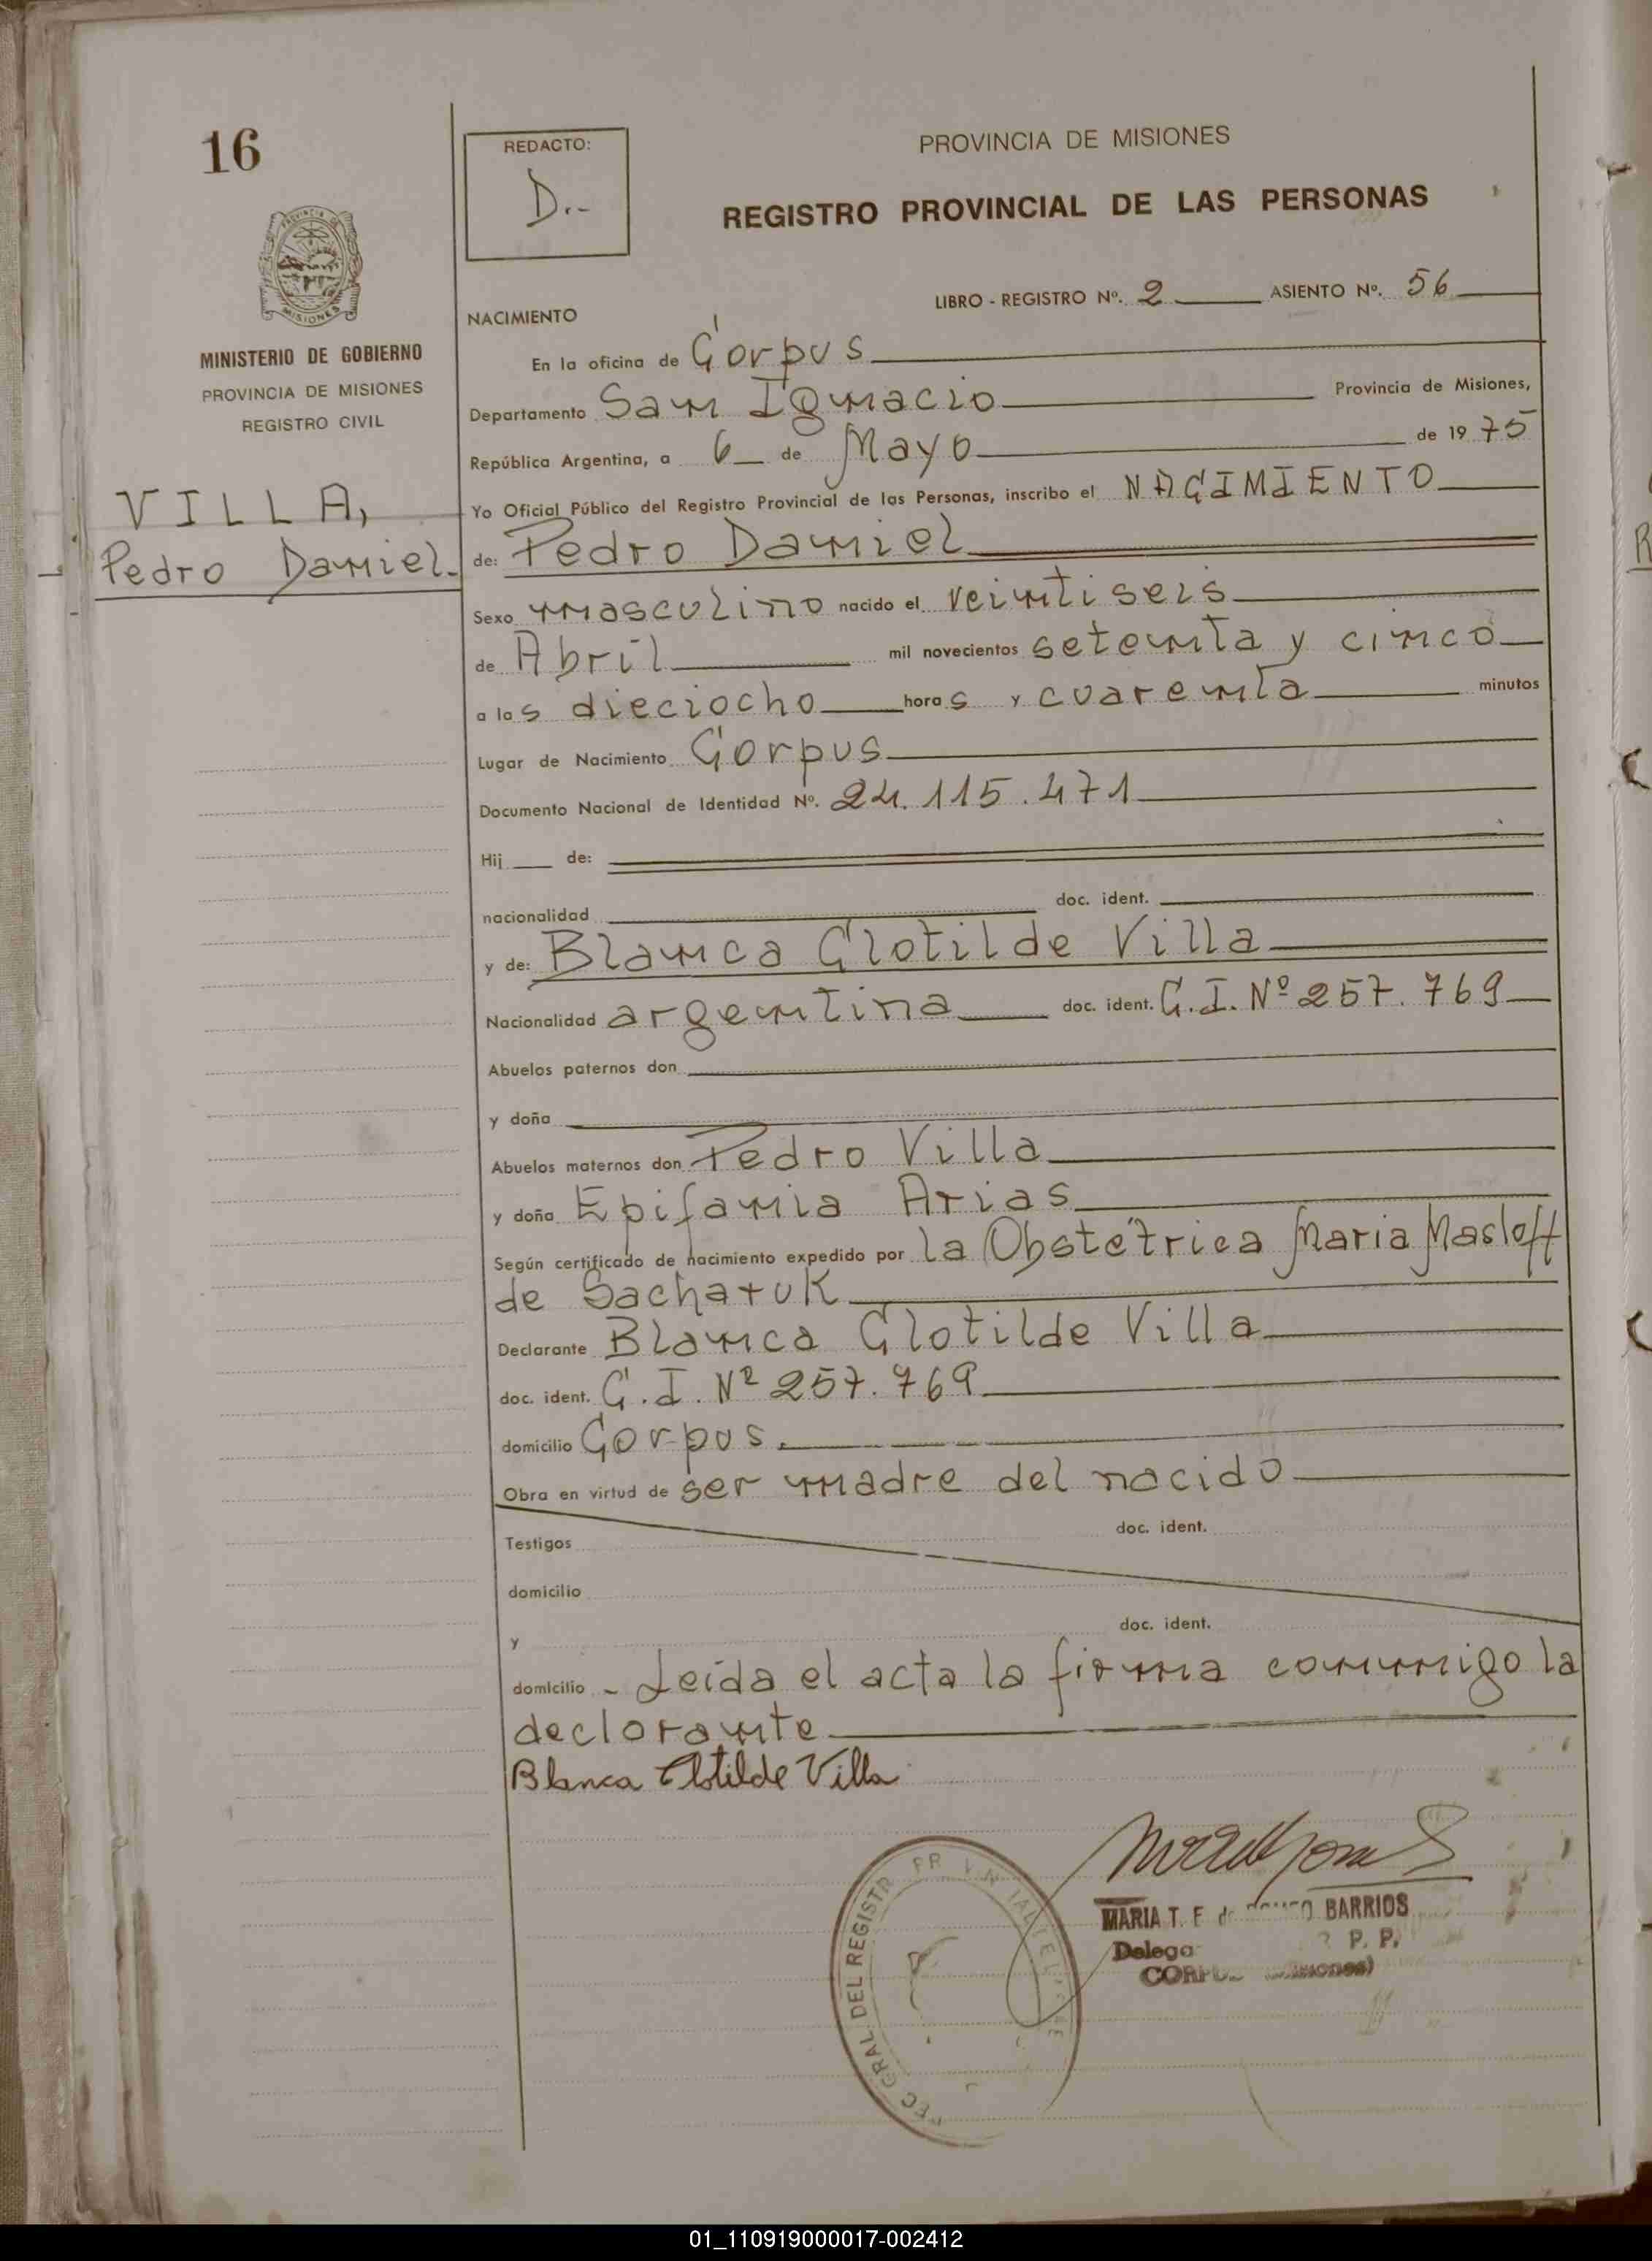 16
REDACTO:
D.-
PROVINCIA DE MISIONES
REGISTRO PROVINCIAL DE LAS PERSONAS
LIBRO - REGISTRO Nº. 2 ASIENTO Nº. 56
MISIONES
MINISTERIO DE GOBIERNO
PROVINCIA DE MISIONES
REGISTRO CIVIL
VILLA,
Pedro Daniel.
NACIMIENTO
En la oficina de Corpus
Departamento San Ignacio Provincia de Misiones,
República Argentina, a 6 de Mayo de 1975
Yo Oficial Público del Registro Provincial de las Personas, inscribo el NACIMIENTO
de: Pedro Daniel
Sexo masculino nacido el veintiseis
de Abril mil novecientos setenta y cinco
a las dieciocho horas y cuarenta minutos
Lugar de Nacimiento Corpus
Documento Nacional de Identidad Nº. 24.115.471
Hij de:
nacionalidad doc. ident.
y de: Blanca Clotilde Villa
Nacionalidad argentina doc. ident. C.I. Nº 257.769
Abuelos paternos don
y doña
Abuelos maternos don Pedro Villa
y doña Epifania Arias
Según certificado de nacimiento expedido por la Obstétrica Maria Masloff
de Sacharuk
Declarante Blanca Clotilde Villa
doc. ident. C.I. Nº 257.769
domicilio Corpus.
Obra en virtud de ser madre del nacido
Testigos doc. ident.
domicilio
y doc. ident.
domicilio - Leída el acta la firma conmigo la
declarante
Blanca Clotilde Villa
GRAL. DEL REGISTR
MARIA T. F. de BARRIOS
P. P.
01_110919000017-002412